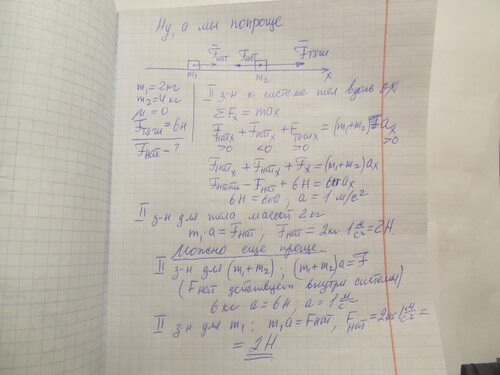 Ну, а мы попроще.
F̅нат F̅нат F̅тяги
m₁ m₂ x
m₁=2кг
m₂=4кг
μ=0
F̅тяги=6Н
F̅нат-?
II з-н к системе тел вдоль OX
ΣFx = max
F̅натx + F̅натx + F̅тягиx = (m₁+m₂)ax
>0 <0 >0 >0
F̅натx + F̅натx + F̅x = (m₁+m₂)ax
Fнат - Fнат + 6Н = 6кг ax
6Н = 6кг a ; a = 1 м/с²
II з-н для тела массой 2 кг
m₁a = Fнат ; Fнат = 2кг 1 м/с² = 2Н.
Можно еще проще...
II з-н для (m₁+m₂) ; (m₁+m₂)a = F̅
(Fнат действует внутри системы)
6 кг · a = 6Н ; a = 1 м/с²
II з-н для m₁ : m₁a = Fнат, Fнат = 2кг 1 м/с² =
= 2Н